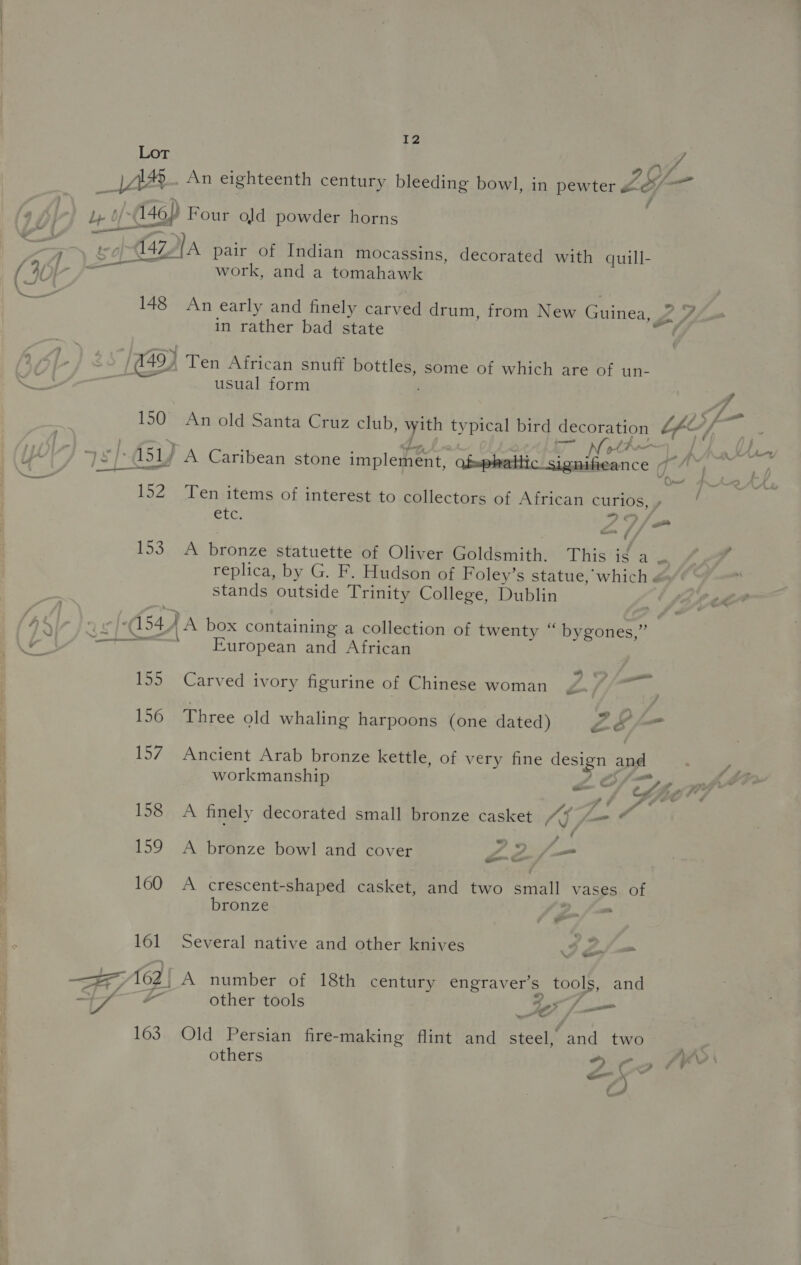 12
Lot
145 An eighteenth century bleeding bowl, in pewter 28/-
146 Four old powder horns
147 A pair of Indian mocassins, decorated with quill-
work, and a tomahawk
148 An early and finely carved drum, from New Guinea,
in rather bad state
149 Ten African snuff bottles, some of which are of un-
usual form
150 An old Santa Cruz club, with typical bird decoration
151 A Caribean stone implement, of phallic significance
152 Ten items of interest to collectors of African curios,
etc.
153 A bronze statuette of Oliver Goldsmith. This is a
replica, by G. F. Hudson of Foley's statue, which
stands outside Trinity College, Dublin
154 A box containing a collection of twenty “ bygones,”
European and African
155 Carved ivory figurine of Chinese woman
156 Three old whaling harpoons (one dated) 28/-
157 Ancient Arab bronze kettle, of very fine design and
workmanship
158 A finely decorated small bronze casket
159 A bronze bowl and cover 22/-
160 A crescent-shaped casket, and two small vases of
bronze
161 Several native and other knives 32/-
162 A number of 18th century engraver's tools, and
other tools
163 Old Persian fire-making flint and steel, and two
others